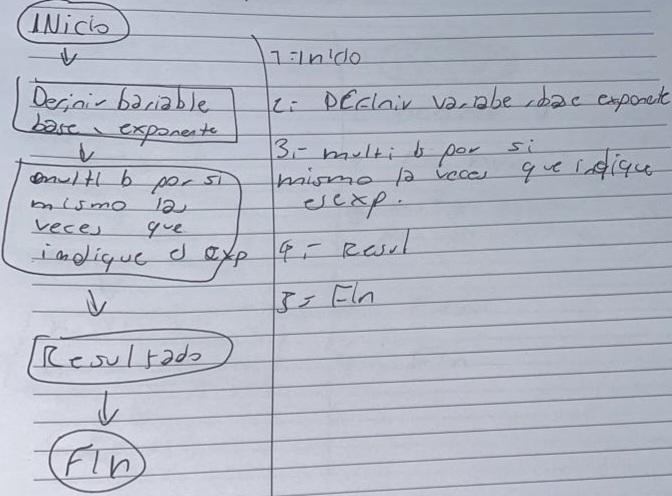 INicio
Definir bariable
base, exponente
multi b por si
mismo las
veces que
indique el exp
Resultado
FIn
1=Inicio
2= DEFInir variabe, bae exponente
3.- multi b por si
mismo la veces que indique
el exp.
4.- Resul
5= FIn